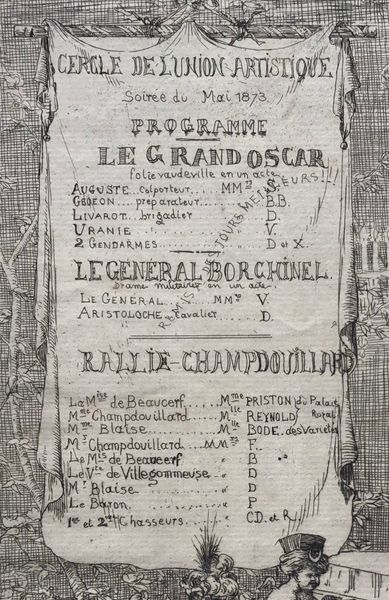 CERCLE DE L'UNION ARTISTIQUE
Soirée du Mai 1873.
PROGRAMME
LE GRAND OSCAR
folie vaudeville en un acte
AUGUSTE colporteur MMrs
GÉDÉON preparateur B.B.
LIVAROT brigadier D.
URANIE V.
2 GENDARMES D et X.
LE GÉNÉRAL BORCHINEL
Drame militaire en un acte.
LE GENERAL MMrs V.
ARISTOLOCHE Cavalier D.
RALLIE-CHAMPDOUILLARD
La Mise de Beaucerf Mme PRISTON du Palais Royal
Mme Champdouillard Mlle REYNOLD
Mme Blaise Mlle BODE des Variétés
Mr Champdouillard MMrs F.
Le Mis de Beaucerf " B
Le Vte de Villegommeuse " D
Mr Blaise " D
Le Baron " P
1er et 2me Chasseurs " CD. et R.